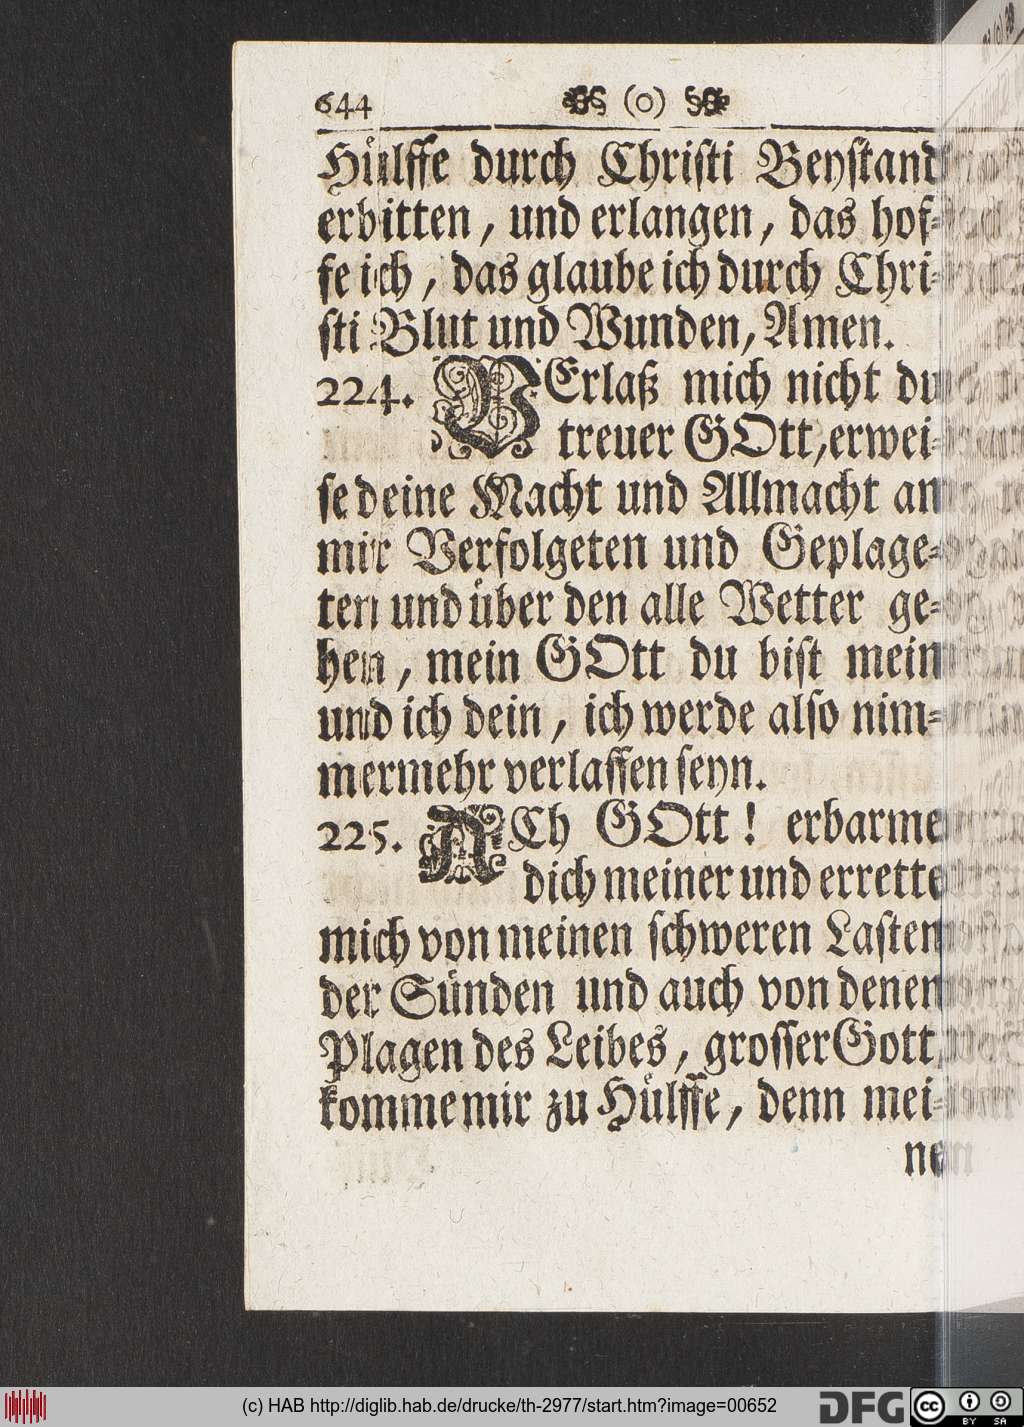 644 (o)
Hülffe durch Chriſti Beyſtand
erbitten, und erlangen, das hof-
fe ich, das glaube ich durch Chri-
ſti Blut und Wunden, Amen.
224. VErlaß mich nicht du
treuer GOtt, erwei-
ſe deine Macht und Allmacht an
mir Verfolgeten und Geplage-
ten und über den alle Wetter ge-
hen, mein GOtt du biſt mein
und ich dein, ich werde alſo nim-
mermehr verlaſſen ſeyn.
225. ACh GOtt! erbarme
dich meiner und errette
mich von meinen ſchweren Laſten
der Sünden und auch von denen
Plagen des Leibes, groſſer Gott,
komme mir zu Hülffe, denn mei-
nen
(c) HAB http://diglib.hab.de/drucke/th-2977/start.htm?image=00652
DFG
cc BY SA